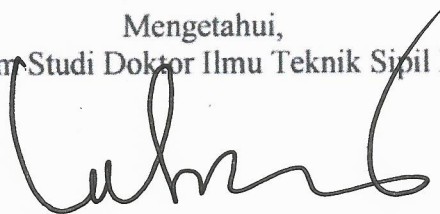 Mengetahui,
m Studi Doktor Ilmu Teknik Sipil